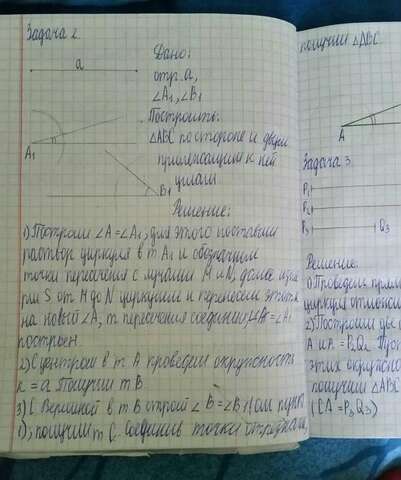 Задача 2.
a
Дано:
отр. a,
∠A₁, ∠B₁
Построить:
△ABC по стороне и двум
прилежащим к ней
углам
A₁
B₁
Решение:
1) Построим ∠A = ∠A₁, для этого поставим
раствор циркуля в т A₁ и обозначим
точки пересечения с лучами M и N, далее
S от M до N циркулем и переносим
на новый ∠A, т пересечения соединим, ∠A = ∠A₁
построен.
2) С центром в т. A проведём окружность
r = a. Получим т B
3) С вершиной в т B отроем ∠B = ∠B₁
1), получим т C. Соединив точки отрезками,
получим △ABC
A
Задача 3.
P₁
P₂
P₃
Q₃
Решение.
1) Проведём
циркуля
2) Построим две
A и A₁ = P₂Q₂
этих окружнос
получим △ABC
(CA = P₃Q₃)